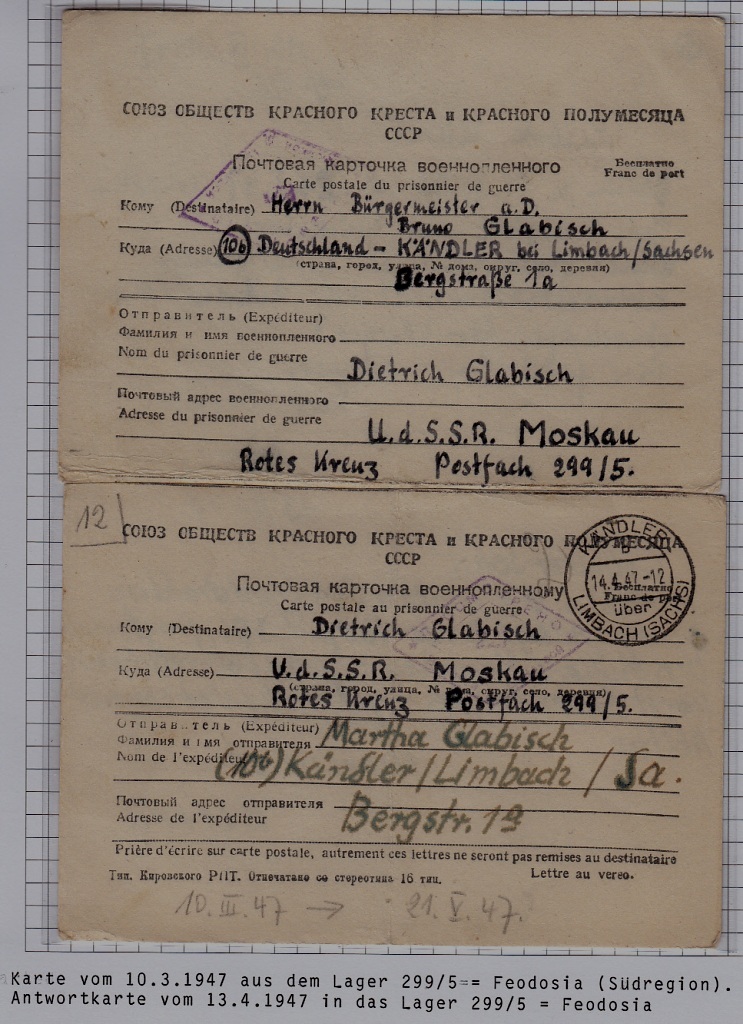 СОЮЗ ОБЩЕСТВ КРАСНОГО КРЕСТА и КРАСНОГО ПОЛУМЕСЯЦА
СССР
Почтовая карточка военнопленного
Бесплатно
Franc de port
Carte postale du prisonnier de guerre
Кому (Destinataire) Herrn Bürgermeister a.D.
Bruno Glabisch
Куда (Adresse) (10b) Deutschland - KÄNDLER bei Limbach/Sachsen
(страна, город, улица, № дома, округ, село, деревня)
Bergstraße 1a
Отправитель (Expéditeur)
Фамилия и имя военнопленного
Nom du prisonnier de guerre
Dietrich Glabisch
Почтовый адрес военнопленного
Adresse du prisonnier de guerre
U.d.S.S.R. Moskau
Rotes Kreuz Postfach 299/5.
12
СОЮЗ ОБЩЕСТВ КРАСНОГО КРЕСТА и КРАСНОГО ПОЛУМЕСЯЦА
СССР
KÄNDLER
b
14.4.47-12
über
LIMBACH (SACHS)
Почтовая карточка военнопленному
Бесплатно
Franc de port
Carte postale au prisonnier de guerre
Кому (Destinataire) Dietrich Glabisch
Куда (Adresse) U.d.S.S.R. Moskau
(страна, город, улица, № дома, округ, село, деревня)
Rotes Kreuz Postfach 299/5.
Отправитель (Expéditeur)
Фамилия и имя отправителя Martha Glabisch
Nom de l'expéditeur (10b) Kändler/Limbach / Sa.
Почтовый адрес отправителя
Adresse de l'expéditeur Bergstr. 1a
Prière d'écrire sur carte postale, autrement ces lettres ne seront pas remises au destinataire
Тип. Кировского РПТ. Отпечатано со стереотипа 16 тип.
Lettre au verso.
10.III.47 → 21.V.47.
Karte vom 10.3.1947 aus dem Lager 299/5 = Feodosia (Südregion).
Antwortkarte vom 13.4.1947 in das Lager 299/5 = Feodosia